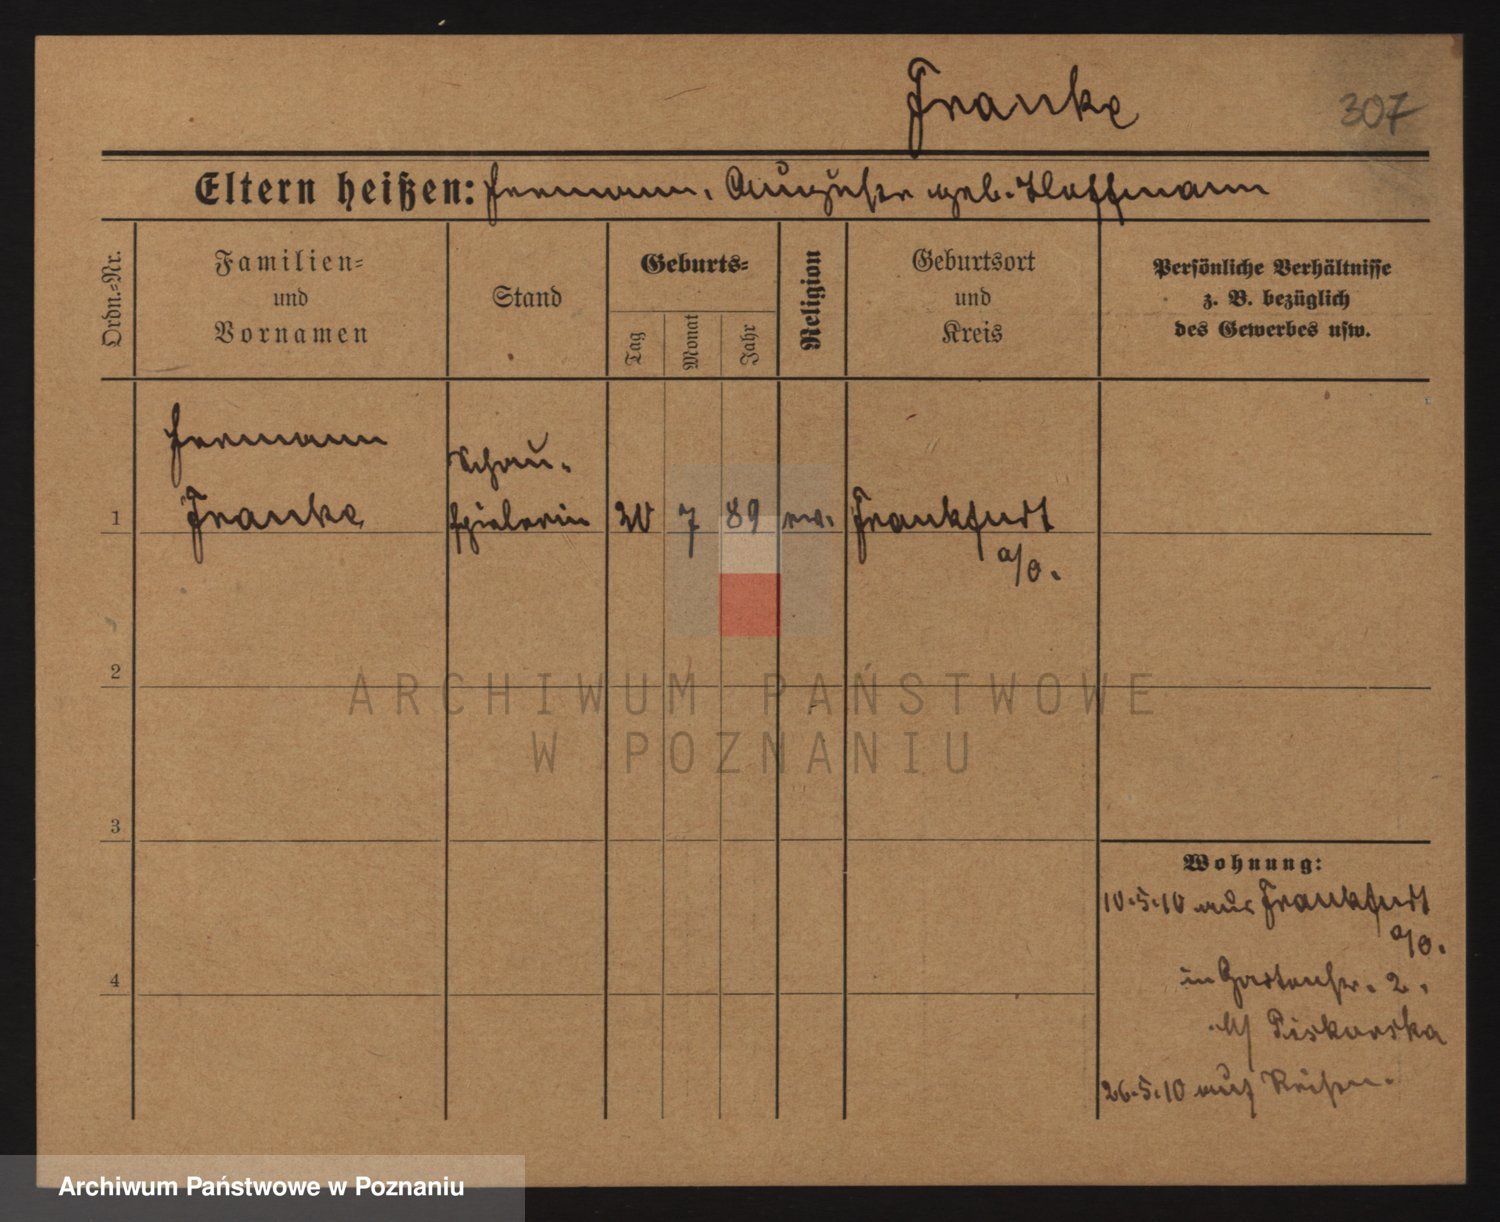 Franke
307
Eltern heißen: Hermann, Auguste geb. Hoffmann
Ordn.-Nr.
Familien-
und
Vornamen
Stand
Geburts-
Tag
Monat
Jahr
Religion
Geburtsort
und
Kreis
Persönliche Verhältnisse
z. B. bezüglich
des Gewerbes usw.
Hermann
Schau-
1 Franke spielerin 20 7 89 ev. Frankfurt
a/O.
2
ARCHIWUM PAŃSTWOWE
W POZNANIU
3
Wohnung:
10.5.10 aus Frankfurt
a/O.
4
in Gartenstr. 2.
Piskorska
26.5.10 auf Reisen.
Archiwum Państwowe w Poznaniu